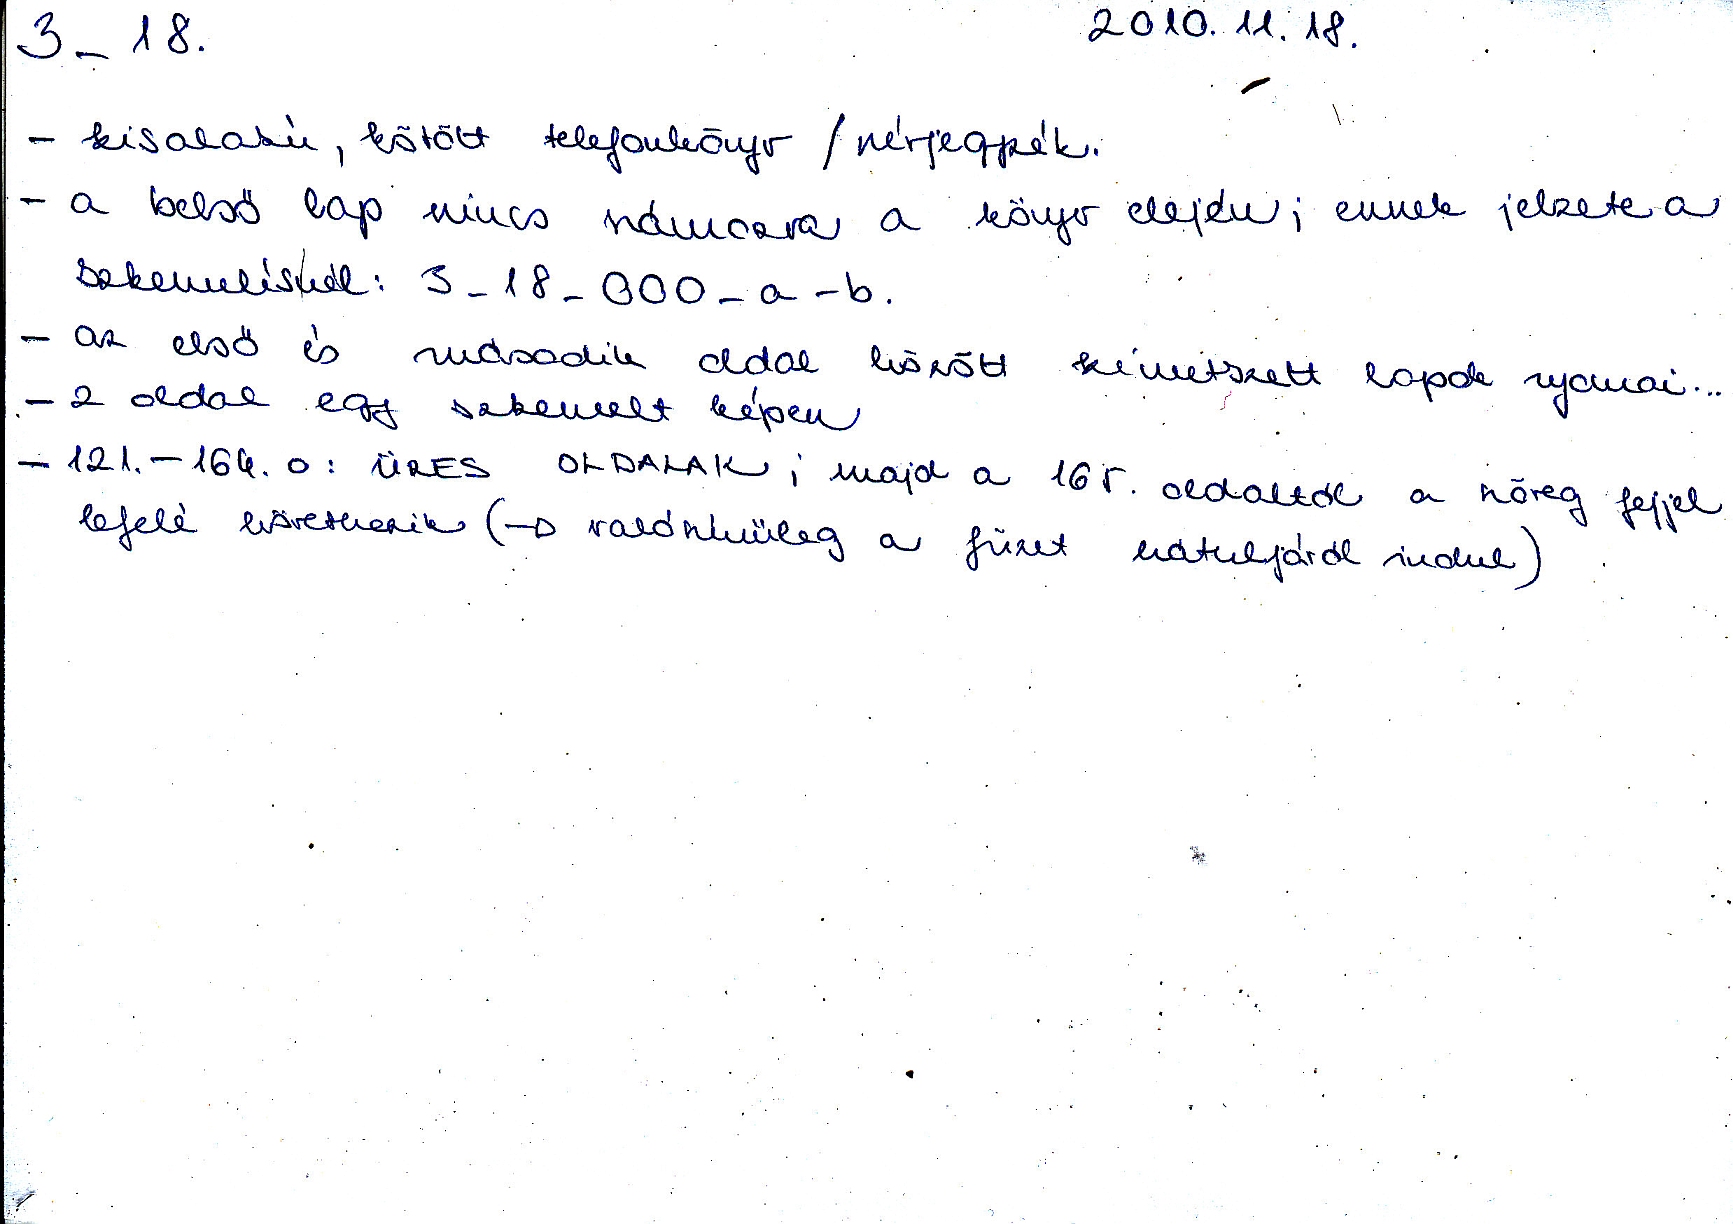 3_18. 2010. 11. 18.
- kisalakú, kötött telefonkönyv / névjegyzék.
- a belső lap nincs számozva a könyv elején; ennek jelzete a
szkennelésnél: 3_18_000_a-b.
- az első és második oldal között kimetszett lapok nyomai...
- 2 oldal egy szkennelt képen
- 121.-164. o: ÜRES OLDALAK; majd a 165. oldaltól a szöveg fejjel
lefelé következik (→ valószínűleg a füzet hátuljáról indul)